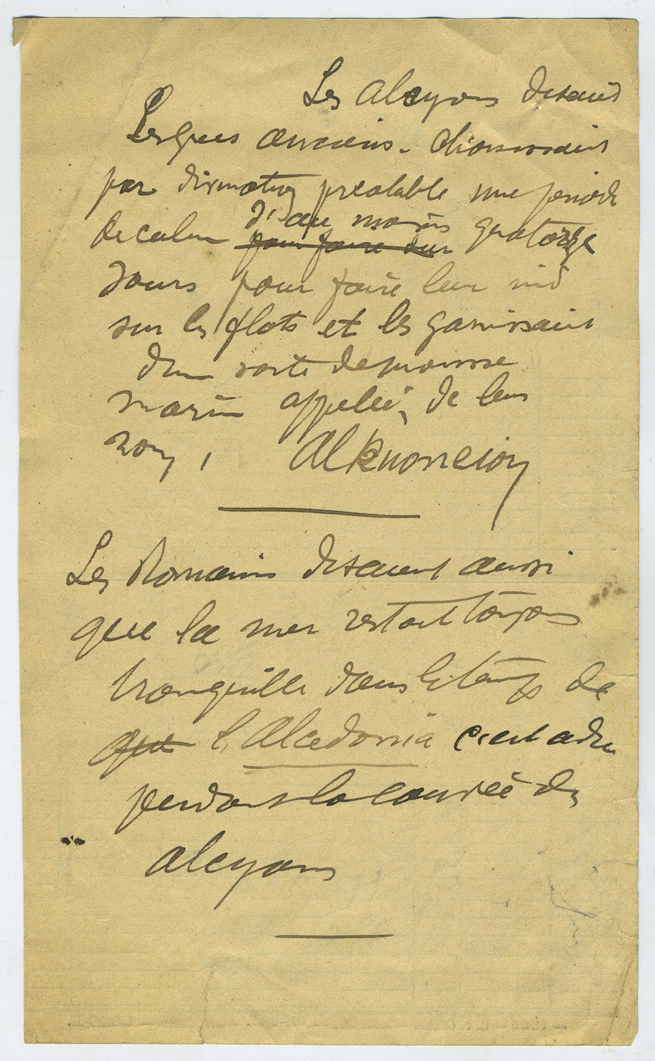 Les alcyons disaient
les grecs anciens. choisissaient
par divination préalable une période
de calme d'au moins quatorze
pour faire sur
jours pour faire leur nid
sur les flots et les garnissaient
d'une sorte de mousse
marine appelée, de leur
nom,
Les Romains disaient aussi
que la mer restait toujours
tranquille dans le temps de
que l'Alcedonia c'est à dire
pendant la couvée des
alcyons